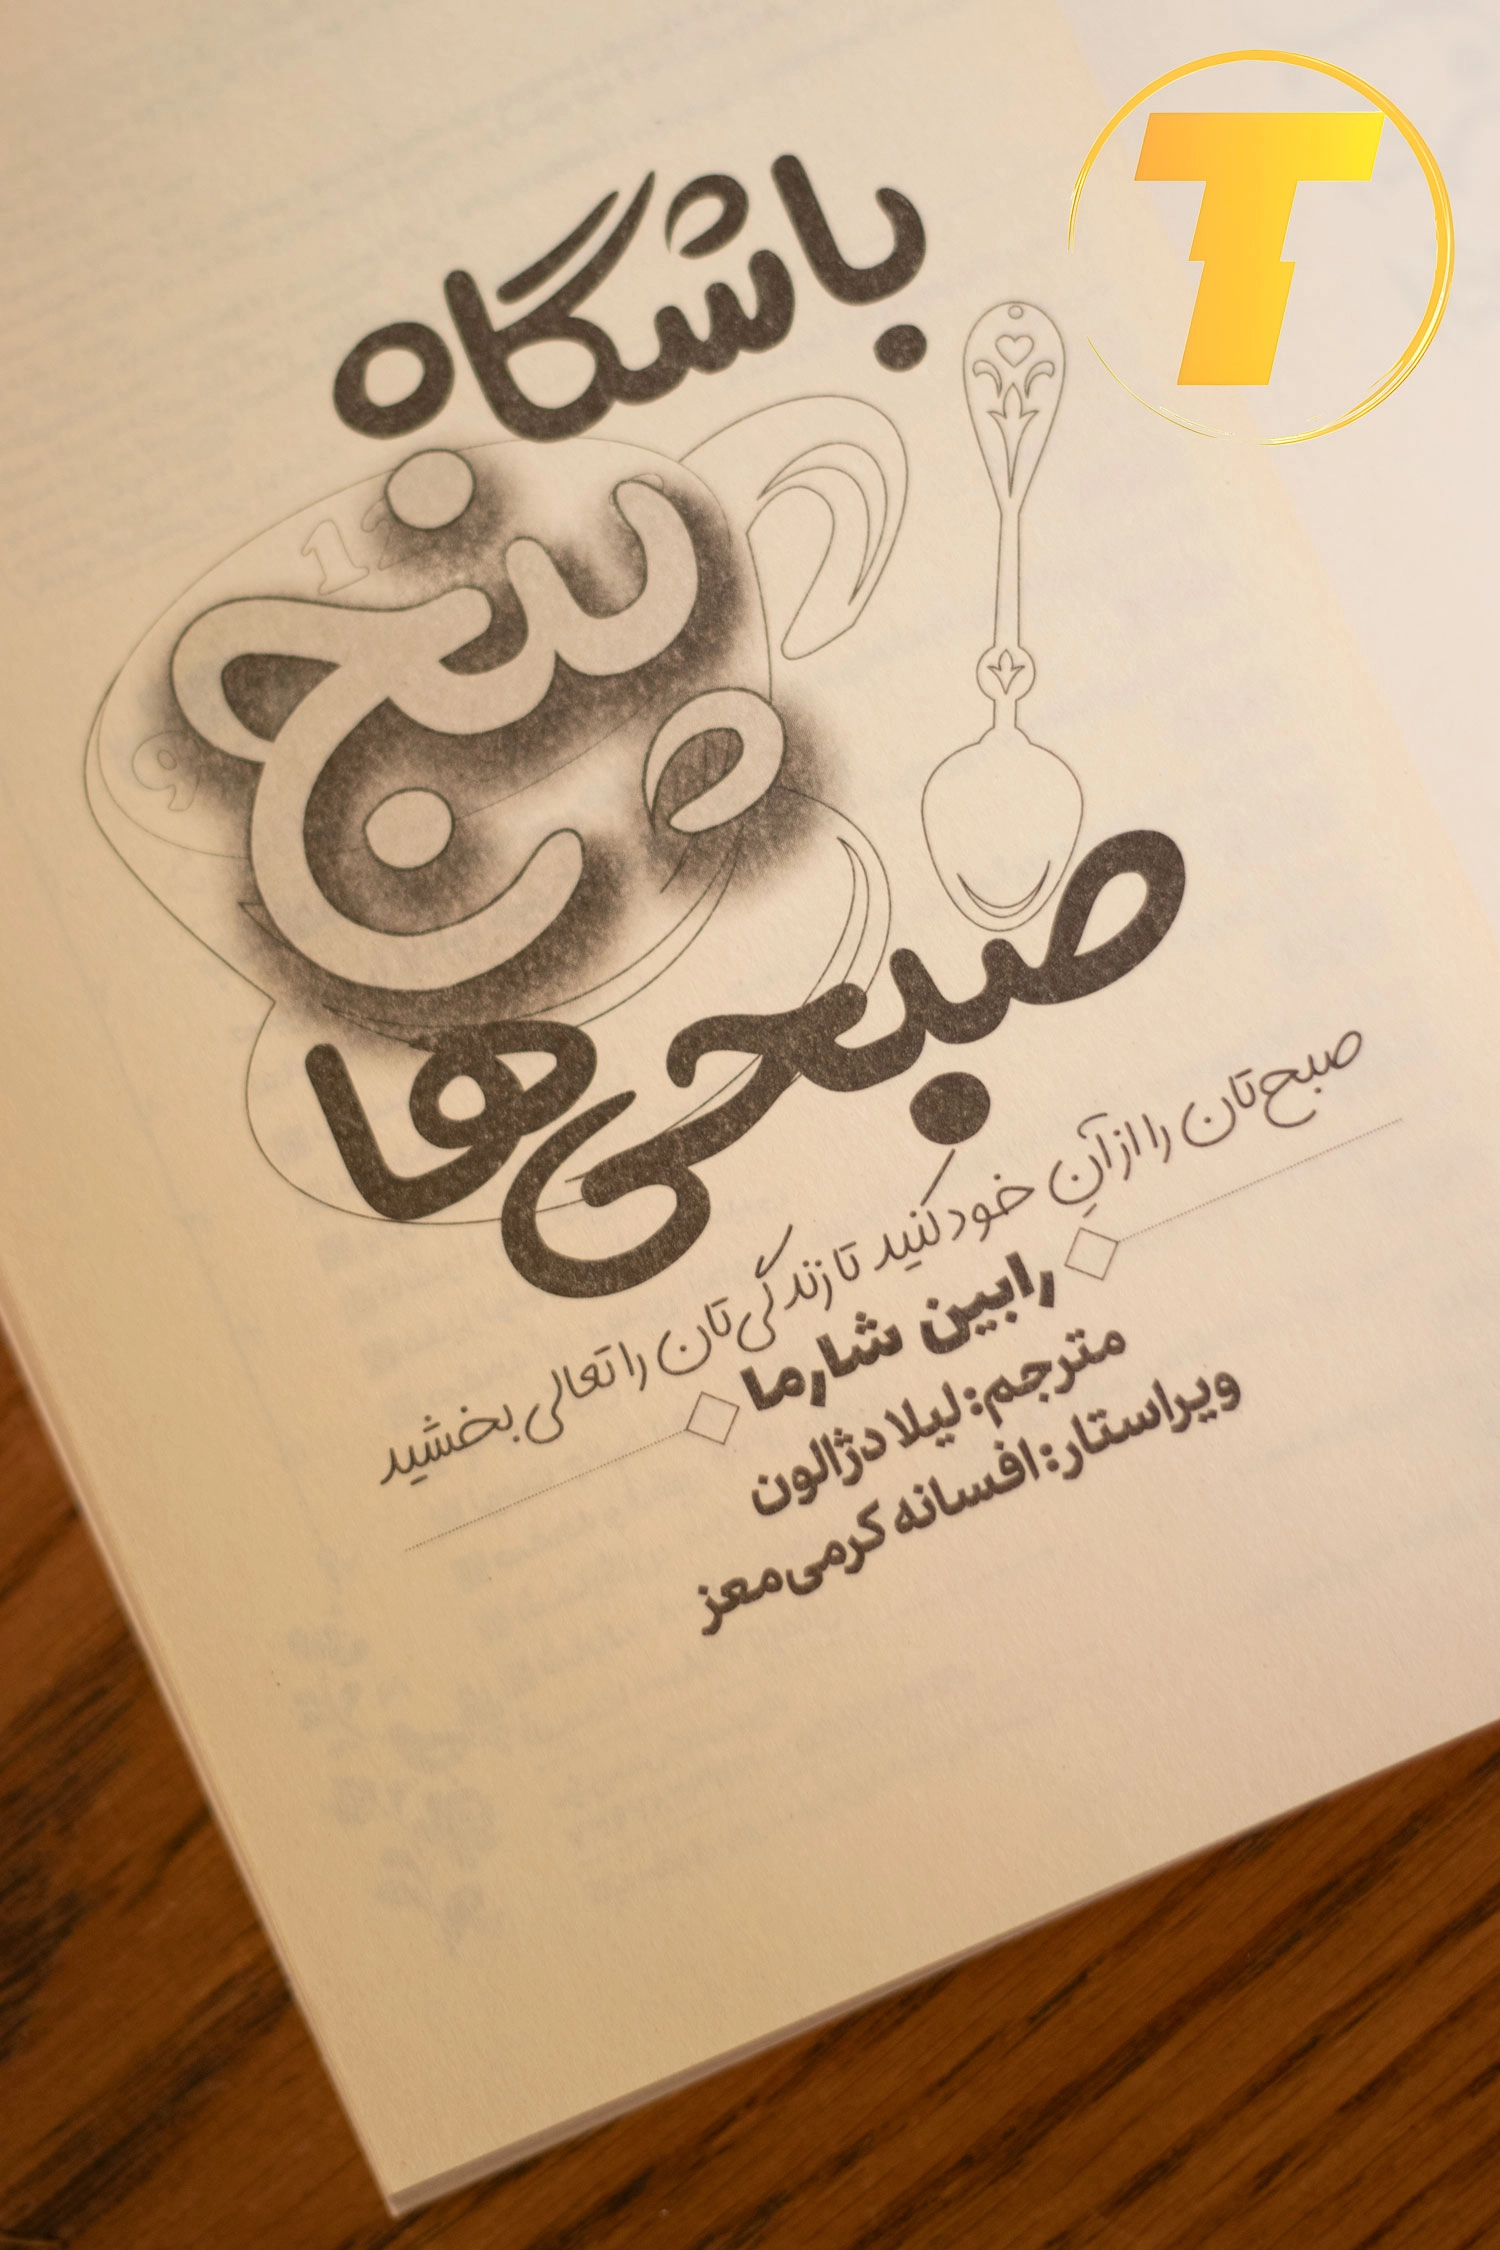 باشگاه
پنج
صبحی‌ها
صبح‌تان را از آنِ خود کنید تا زندگی‌تان را تعالی بخشید
رابین شارما
مترجم: لیلا دژالون
ویراستار: افسانه کرمی‌معز
12
9
T